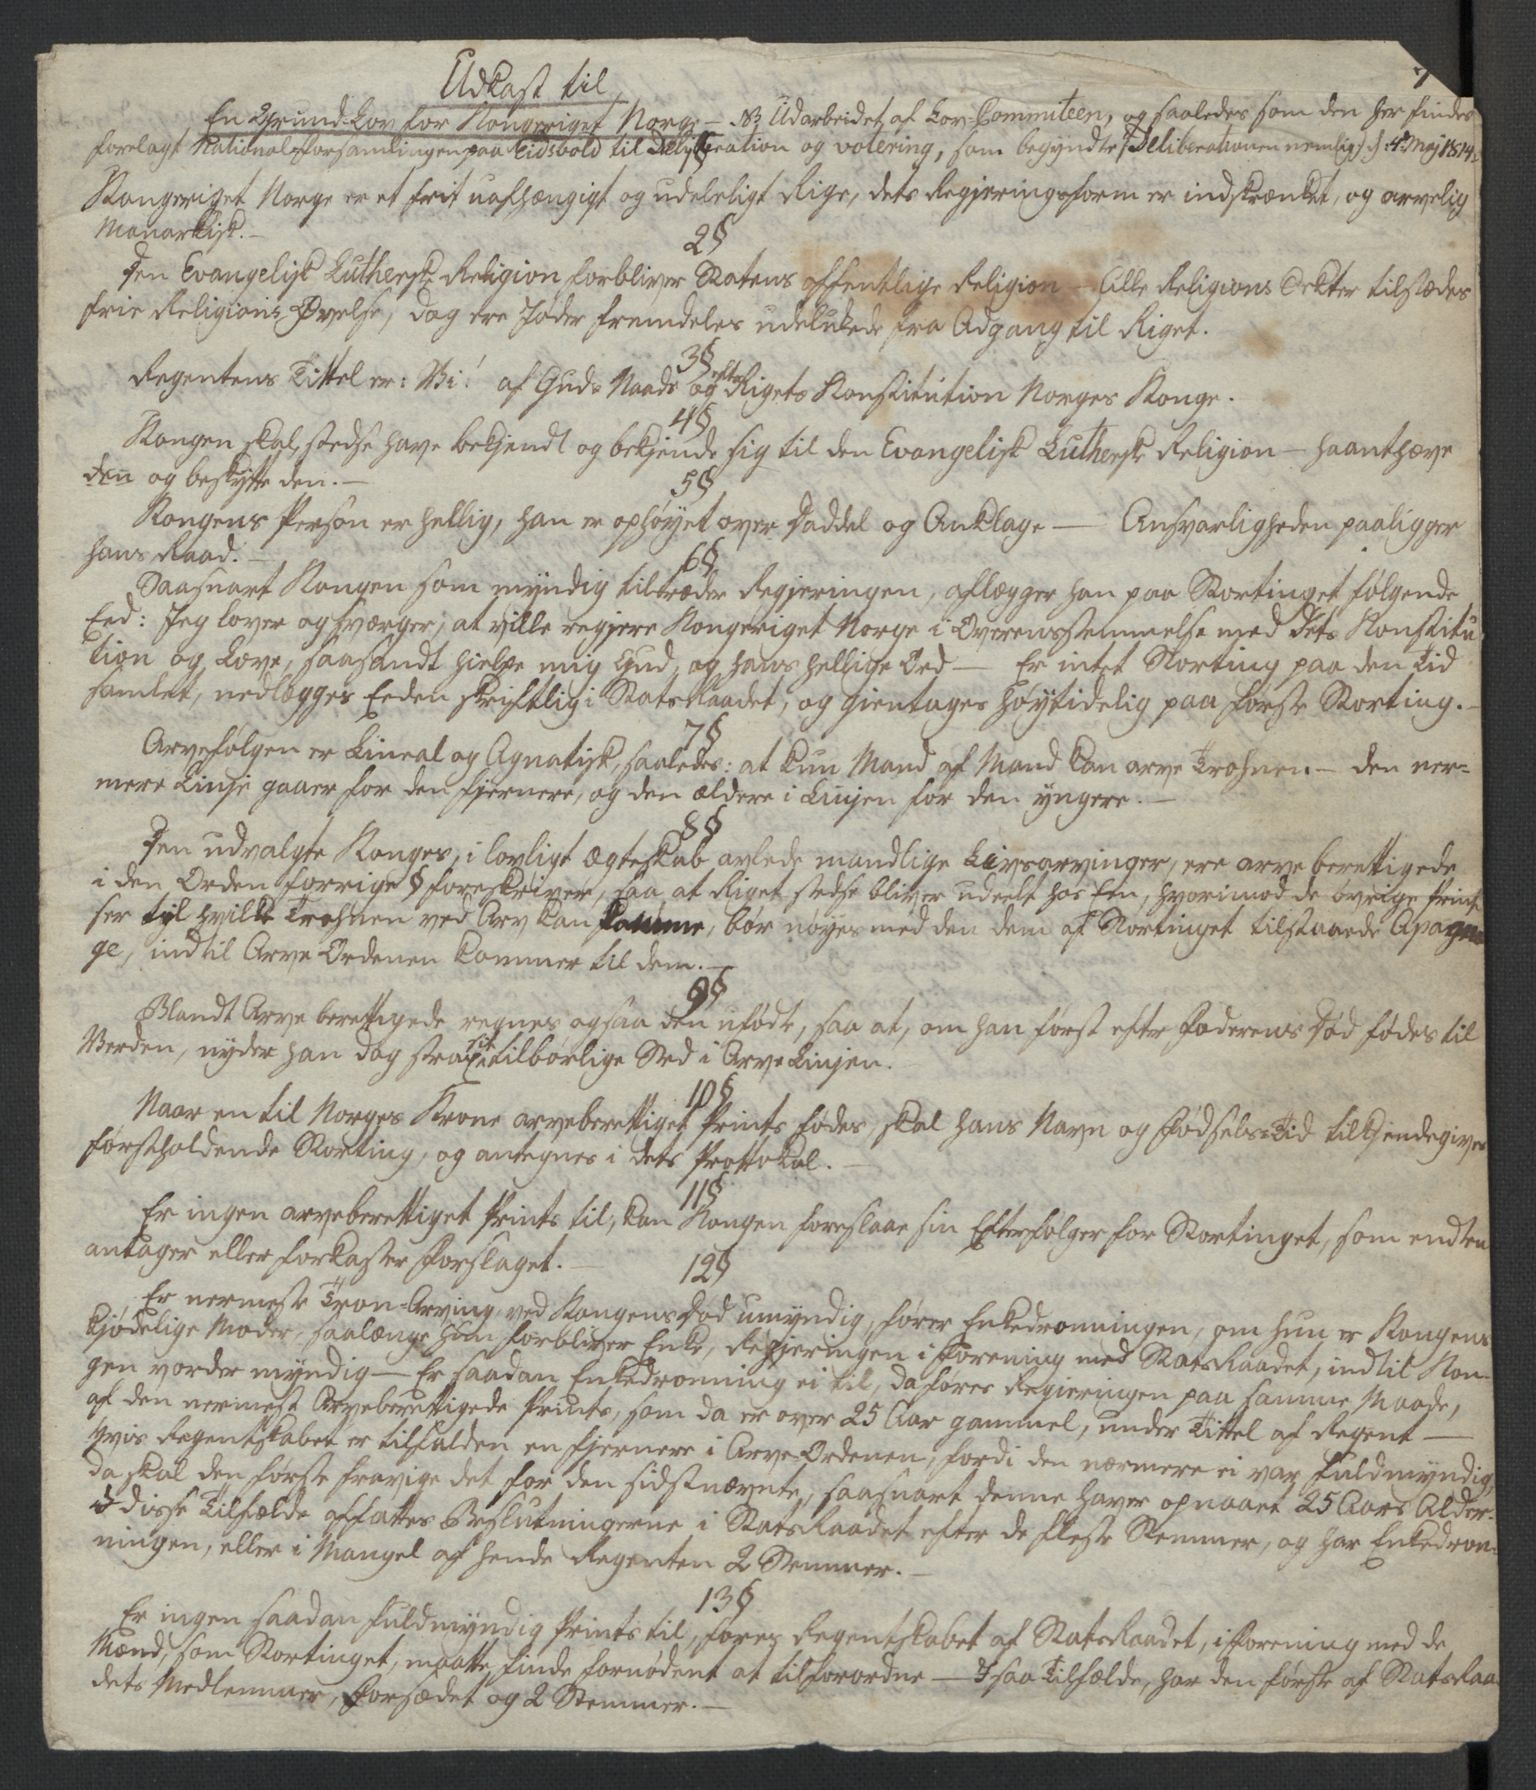 Udkast til
En Grund-Lov for Kongeriget Norge — Udarbeidet af Lov-Committeen, og saaledes som den her findes
forelagt Nationalforsamlingen paa Eidsvold til og votering, som begyndte (Deliberationen nemlig) d: 4de Maj 1814
Kongeriget Norge er et frit uafhængigt og udeleligt Rige, dets Regjeringsform er indskrænket, og arvelig
Monarkisk. —
2§
Den Evangelisk Luthersk Religion forbliver Statens offentlige Religion — Alle Religions Sekter tilstædes
frie Religions-Øvelse, dog ere Jøder fremdeles udelukede fra Adgang til Riget.
3§
Regentens Tittel er: Vi! af Guds Naade og efter Rigets Konstitution Norges Konge.
4§
Kongen skal stedse have bekjendt og bekjende sig til den Evangelisk Luthersk Religion — haanthæve
den og beskytte den. —
5§
Kongens Person er hellig, han er ophøyet over Daddel og Anklage — Ansvarligheden paaligger
hans Raad. —
6§
Saasnart Kongen som myndig tiltræder Regjeringen, aflægger han paa Stortinget følgende
Eed: Jeg lover og sværger, at ville regjere Kongeriget Norge i Overensstemmelse med dets Konstitu
tion og Love, saasandt hielpe mig Gud, og hans hellige Ord — Er intet Storting paa den Tid
samlet, nedlægges Eeden skriftlig i StatsRaadet, og gientages høytidelig paa første Storting. —
7§
Arvefølgen er Lineal og Agnatisk, saaledes: at kun Mand af Mand kan arve Trohnen. — den ner=
mere Linje gaaer for den fjernere, og den ældere i Linjen for den yngere. —
8§
Den udvalgte Konges, i lovligt Ægteskab avlede mandlige Livsarvinger, ere arve berettigede
i den Orden forrige § foreskriver, saa at Riget stedse bliver udeelt hos Een, hvorimod de øvrige Print
ser til hvilke Trohnen ved Arv kan komme, bør nøyes med den dem af Stortinget tilstaaede Apagna
ge, indtil Arve Ordenen kommer til dem. —
9§
Blandt Arve berettigede regnes ogsaa den ufødte, saa at, om han først efter Faderens Død fødes til
Verden, nyder han dog strax sit tilbørlige Sted i Arve Linjen.
10§
Naar en til Norges Krone arveberettiget Prints fødes, skal hans Navn og Fødsels=Tid tilkjendegives
førstholdende Storting, og antegnes i dets Prottokol. —
11§
Er ingen arveberettiget Prints til, kan Kongen foreslaae sin Efterfølger for Stortinget, som endten
antager eller forkaster Forslaget. —
12§
Er nermeste Tron=Arving ved Kongens Død umyndig, fører Enkedronningen, om hun er Kongens
kjødelige Moder, saalænge hun forbliver Enke, Regjeringen i Forening med StatsRaadet, indtil Kon=
gen vorder myndig — Er saadan Enkedronning ei til, da føres Regieringen paa samme Maade,
af den nermest Arveberettigede Prints, som da er over 25 Aar gammel, under Tittel af Regent —
Hvis Regentskabet er tilfalden en fjernere i Arve-Ordenen, fordi den nærmere ei var fuldmyndig,
da skal den første fravige det for den sidstnævnte, saasnart denne haver opnaaet 25 Aars Alder.
I disse Tilfælde affattes Beslutningerne i StatsRaadet efter de fleste Stemmer, og har Enkedron=
ningen, eller i Mangel af hende Regenten 2 Stemmer. —
13§
Er ingen saadan fuldmyndig Prints til, føres Regentskabet af StatsRaadet, i Forening med de
Mænd, som Stortinget, maatte finde fornødent at tilforordne — I saa Tilfælde, har den første af StatsRaa
dets Medlemmer, Forsædet og 2 Stemmer. —